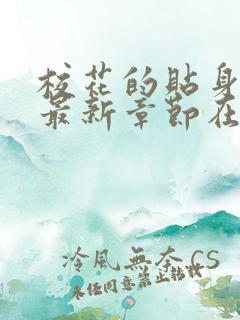 校花的貼身
最新章節在
冷風無奈 CS
未经同意禁止转载